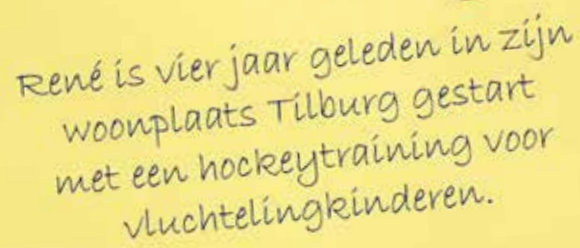 René is vier jaar geleden in zijn
woonplaats Tilburg gestart
met een hockeytraining voor
vluchtelingkinderen.